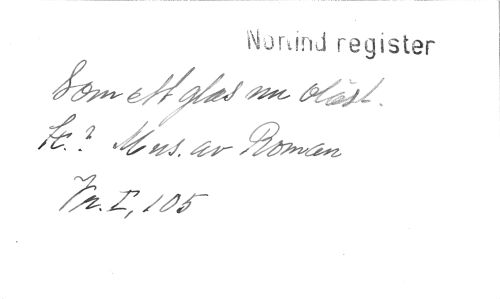 Norlind register
Som ett glas nu oläst.
H.? Mus. av Roman
Vr. I, 105